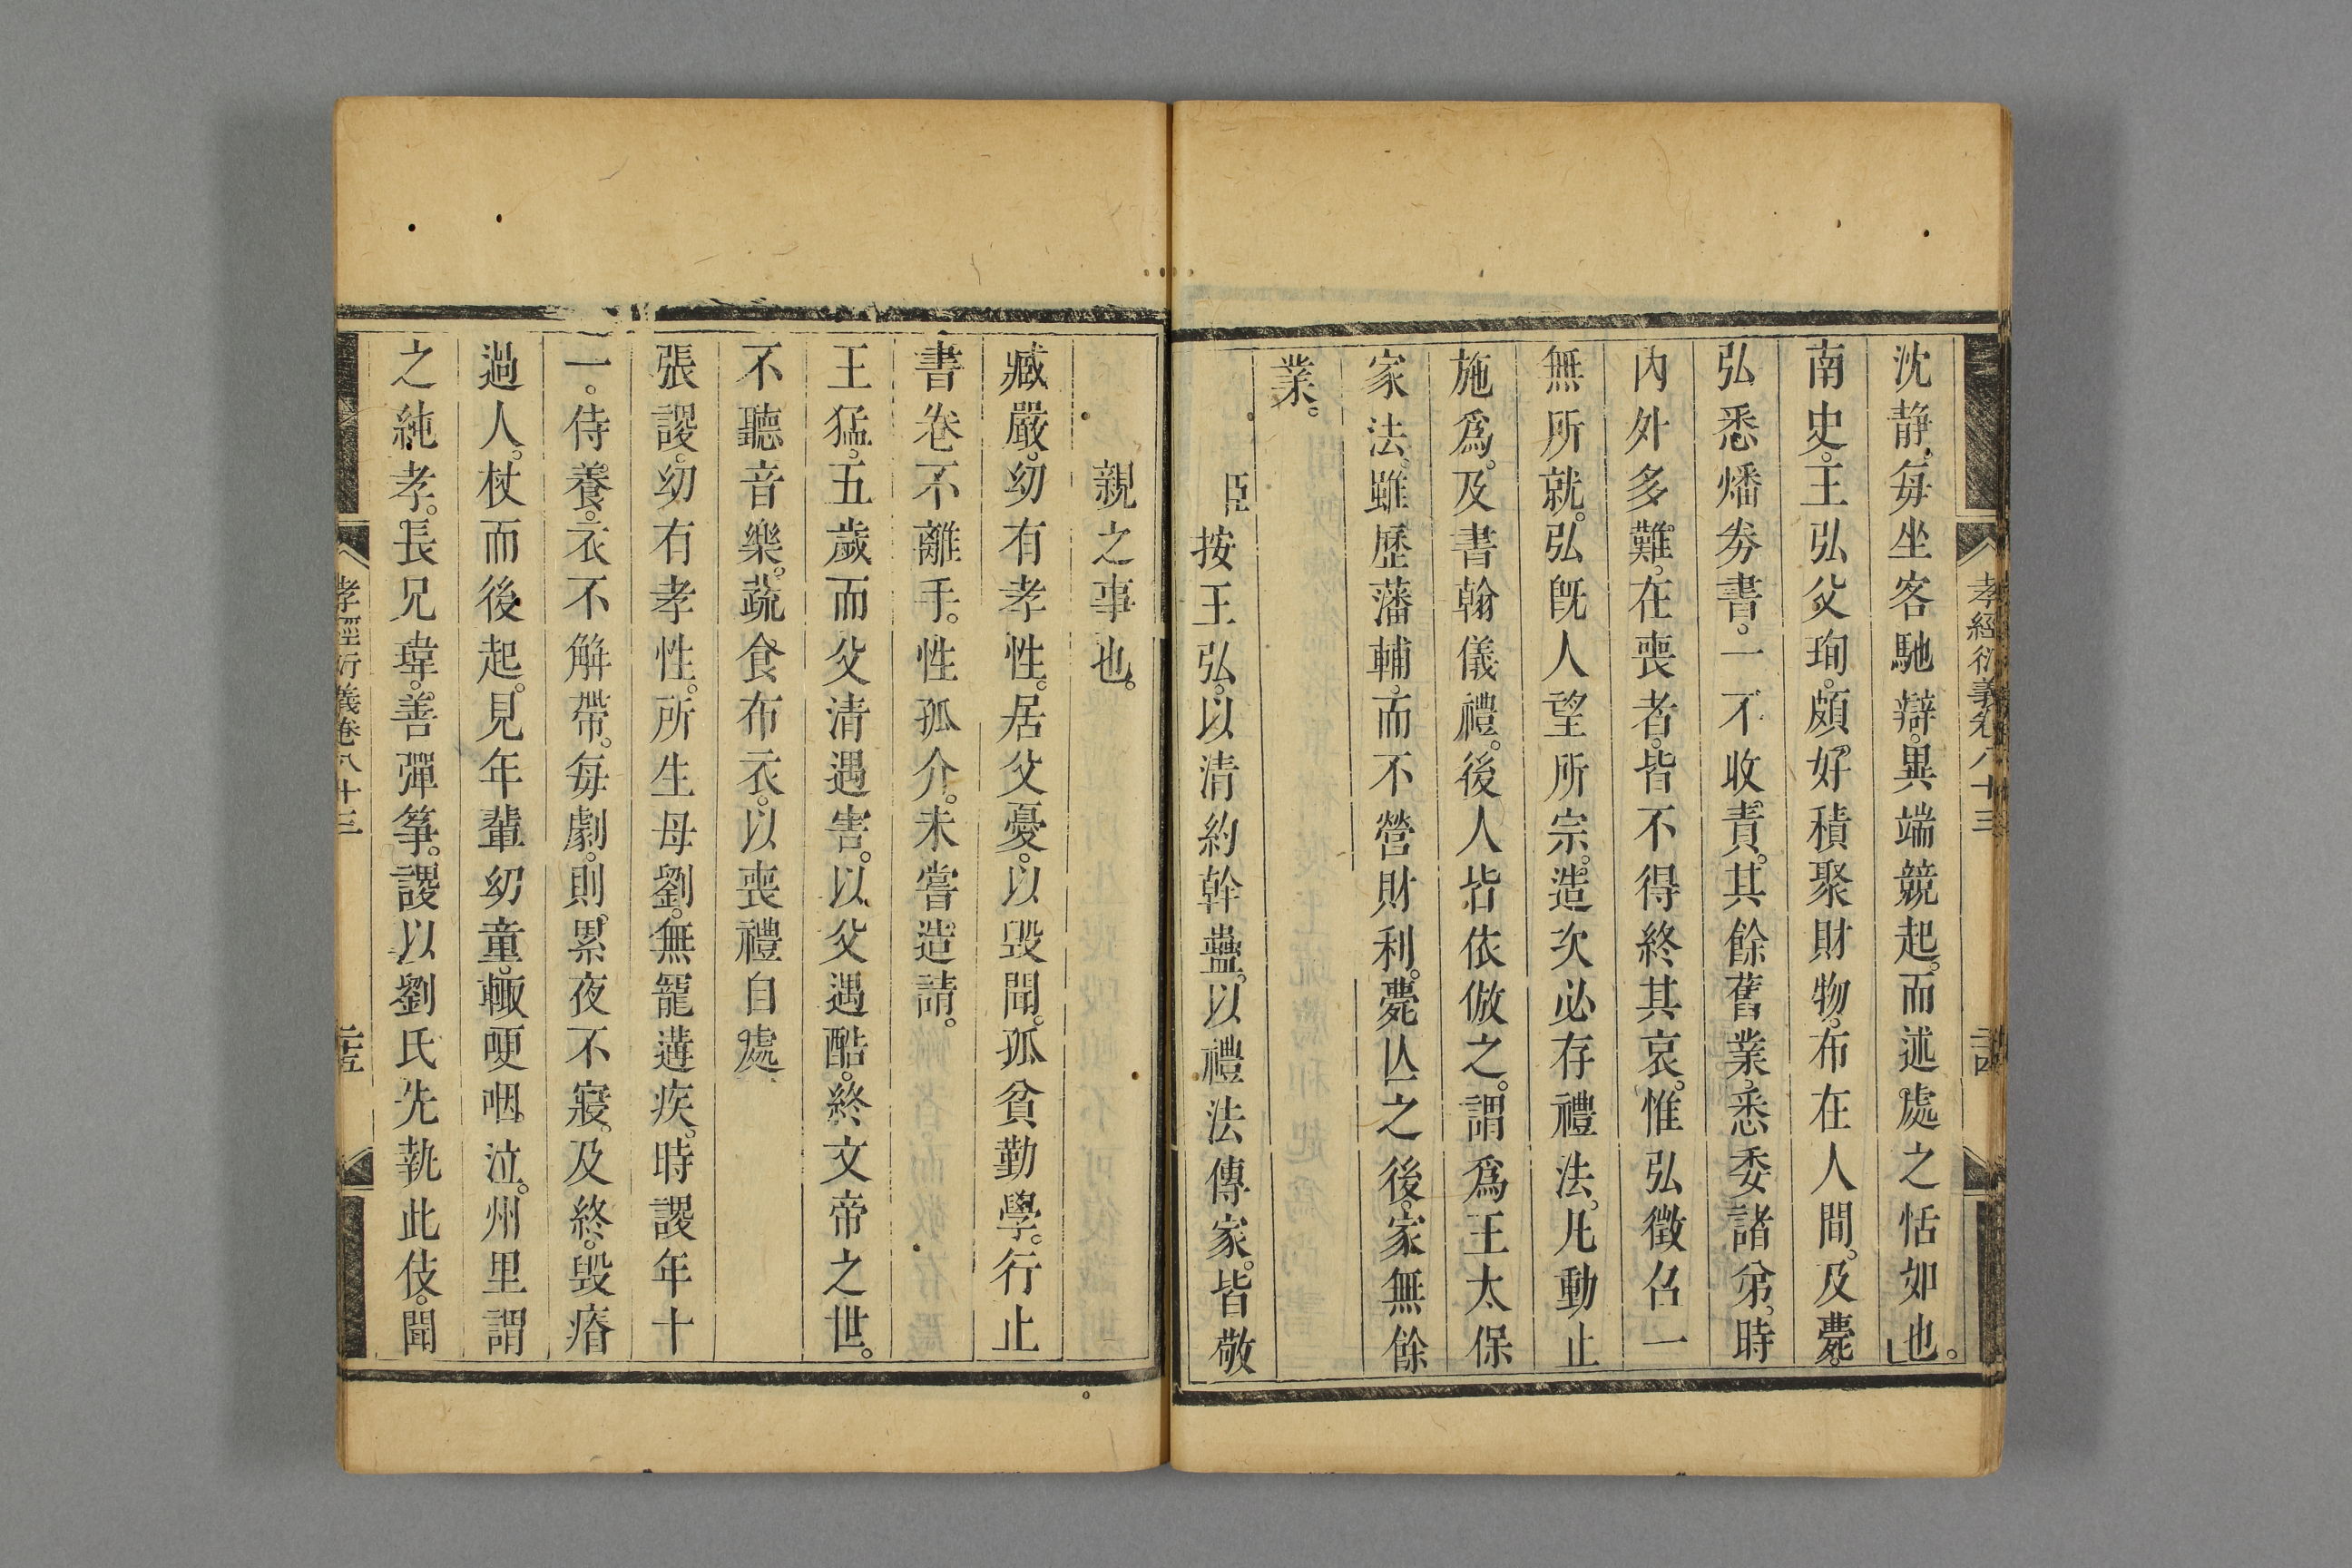 孝經衍義卷八十三
沈靜。每坐客馳辯。異端競起。而述處之恬如也。
南史。王弘父珣。頗好積聚財物。布在人間。及薨。
弘悉燔券書。一不收責。其餘舊業。悉委諸弟。時
內外多難。在喪者。皆不得終其哀。惟弘徵召一
無所就。弘旣人望所宗。造次必存禮法。凡動止
施爲。及書翰儀禮。後人皆依倣之。謂爲王太保
家法。雖歷藩輔。而不營財利。薨亾之後。家無餘
業。
臣按王弘。以清約幹蠱。以禮法傳家。皆敬
親之事也。
臧嚴。幼有孝性。居父憂。以毀聞。孤貧勤學。行止
書卷不離手。性孤介。未嘗造請。
王猛。五歲而父清遇害。以父遇酷。終文帝之世。
不聽音樂。蔬食布衣。以喪禮自處
張謖。幼有孝性。所生母劉。無寵遘疾。時謖年十
一。侍養。衣不解帶。每劇。則累夜不寢。及終。毀瘠
過人。杖而後起。見年輩幼童。輙哽咽泣。州里謂
之純孝。長兄瑋。善彈箏。謖以劉氏先執此伎。聞
孝經衍義卷八十三